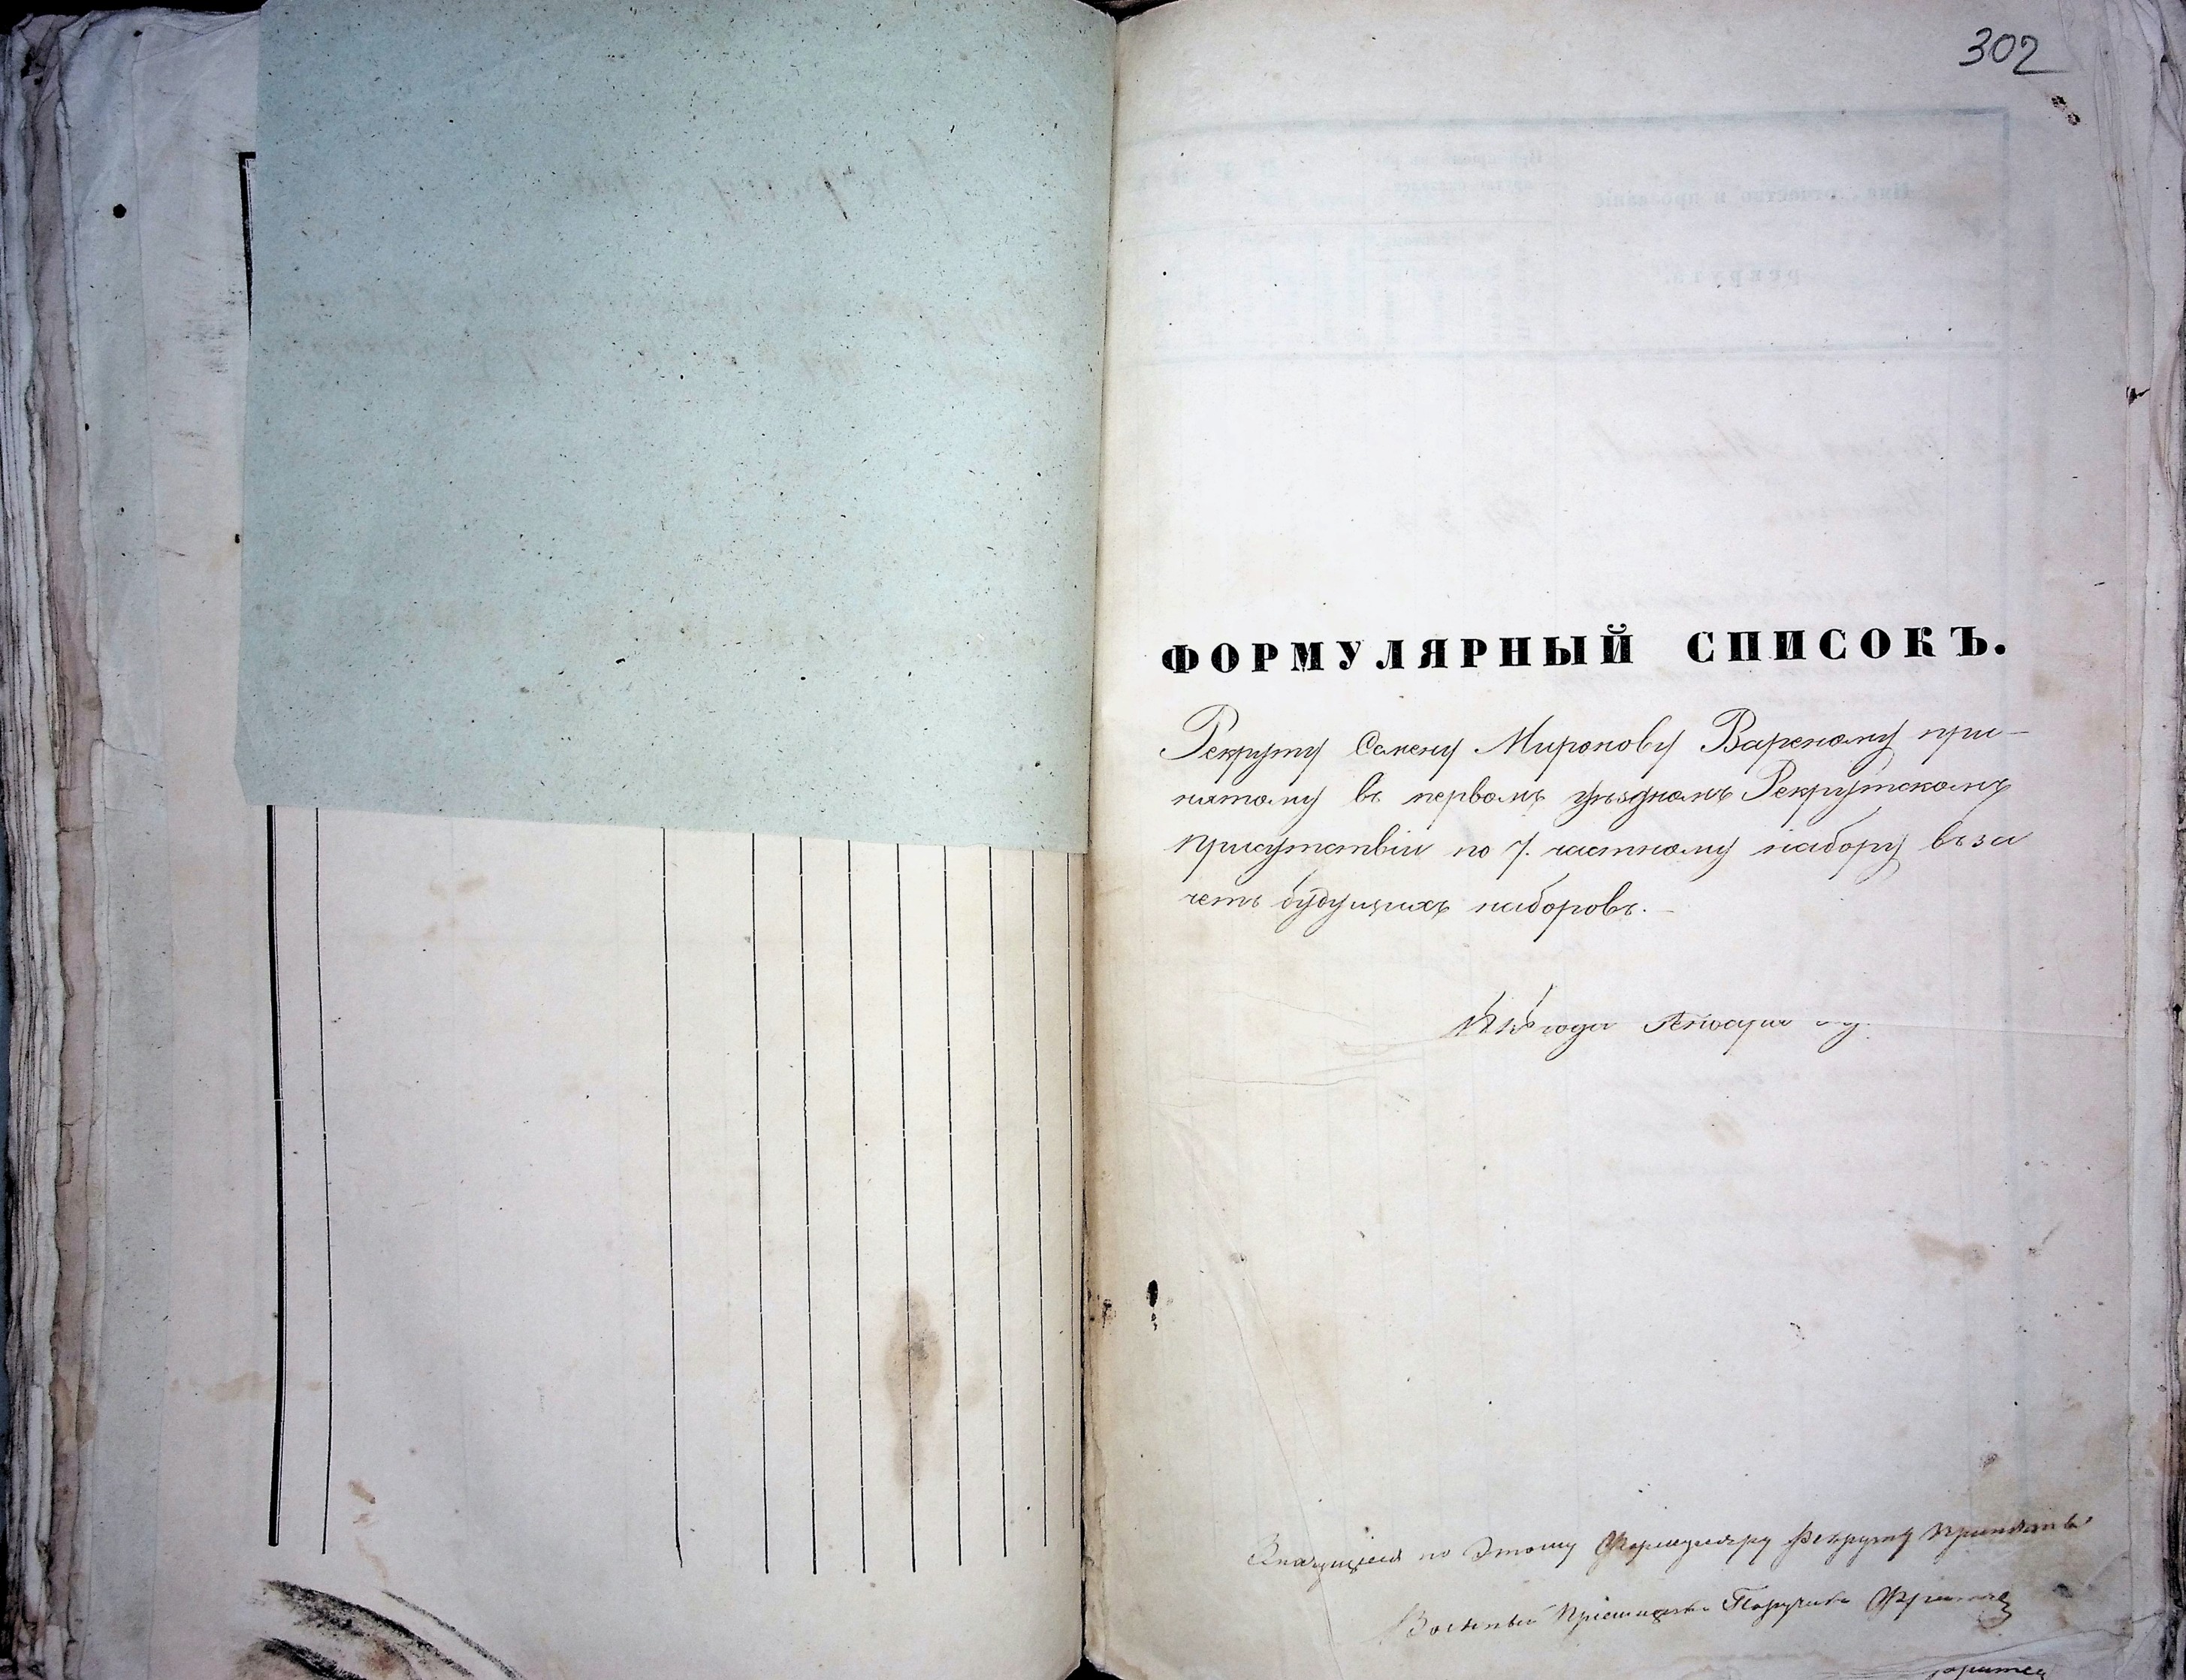 302
ФОРМУЛЯРНЫЙ СПИСОКЪ.
Рекруту Семену Миронову Вареному при-
нятому въ первомъ уѣздномъ Рекрутскомъ
присутствіи по 7. частному набору въ за
четъ будущихъ наборовъ.
года Генваря
Значущійся по этому Формуляру Рекрутъ принятъ
Военный Пріемщикъ Поручикъ